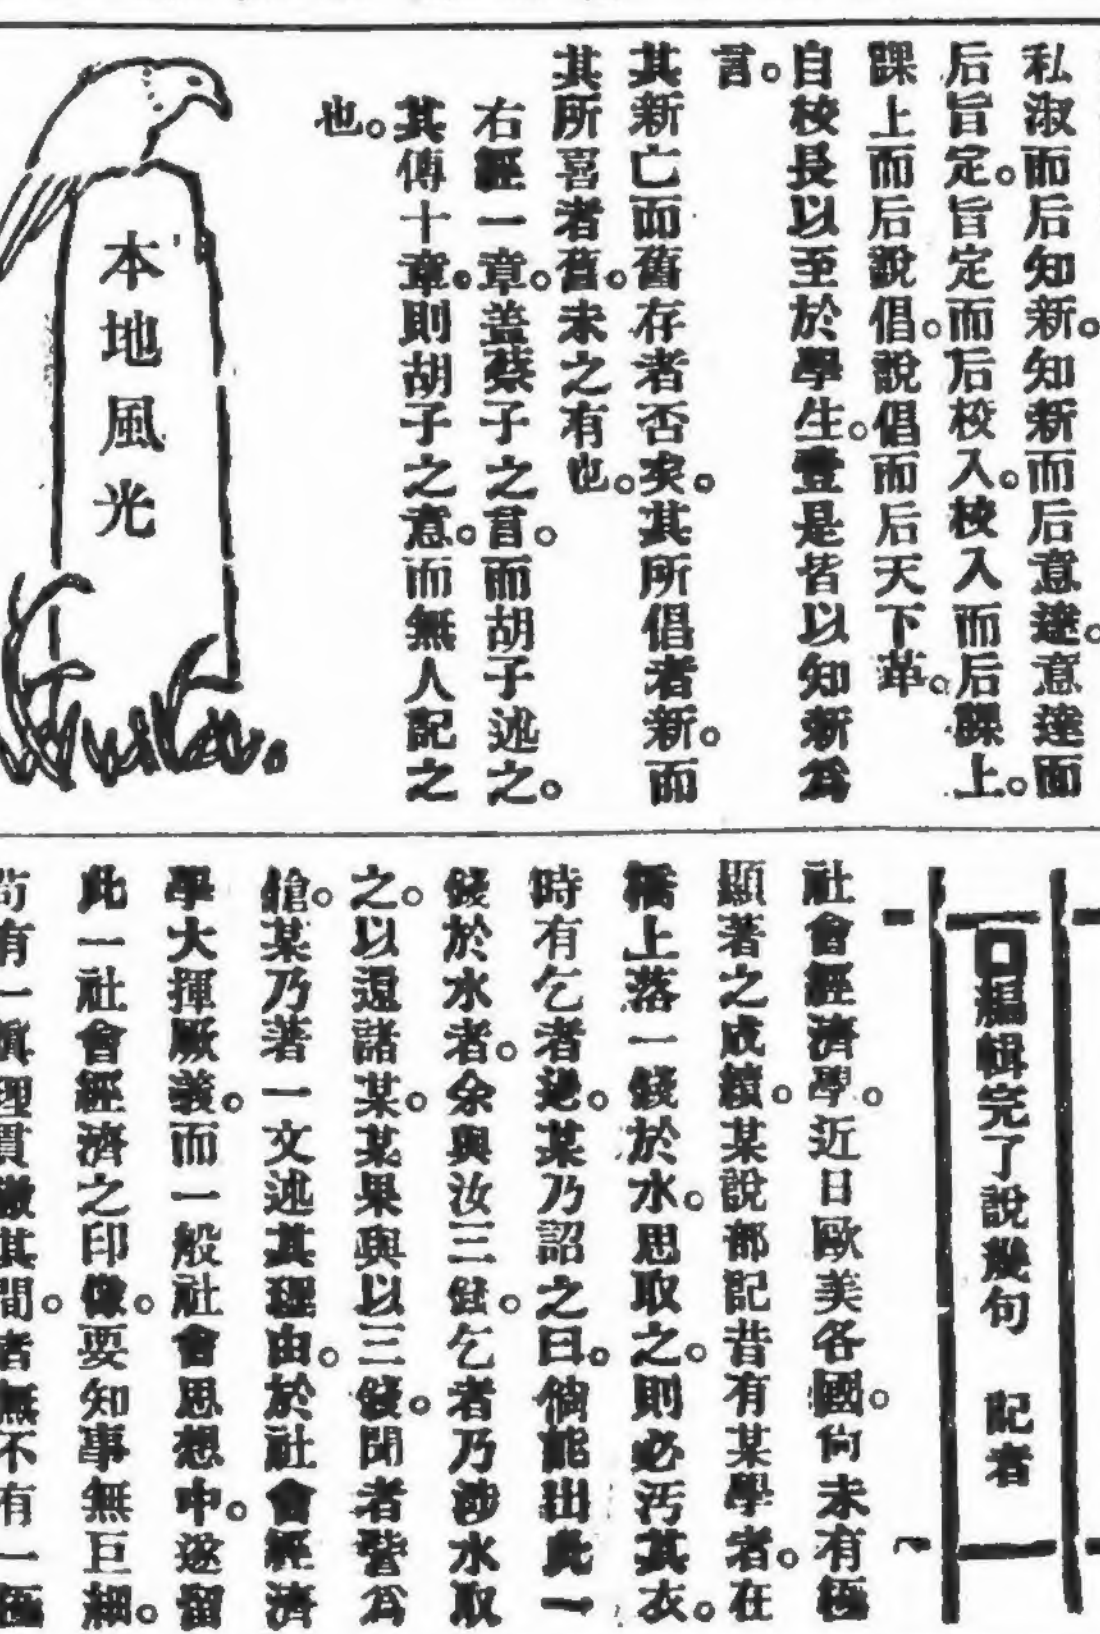 私淑而后知新。知新而后意達。意達而
后旨定。旨定而后校入。校入而后課上。
課上而后說倡。說倡而后天下革。
自校長以至於學生。壹是皆以知新爲
言。
其新亡而舊存者否矣。其所倡者新。而
其所喜者舊。未之有也。
右經一章。盖蔡子之言。而胡子述之。
其傳十章。則胡子之意。而無人記之
也。
本地風光
口編輯完了說幾句　記者
社會經濟學。近日歐美各國。尙未有極
顯著之成績。某說部記昔有某學者。在
橋上落一錢於水。思取之。則必污其衣。
時有乞者過。某乃詔之曰。倘能出此一
錢於水者。余與汝三錢。乞者乃涉水取
之。以還諸某。某果與以三錢。聞者皆爲
愴。某乃著一文述其理由。於社會經濟
學大揮厥義。而一般社會思想中。遂留
此一社會經濟之印像。要知事無巨細。
苟有一眞理貫徹其間。者無不有一極